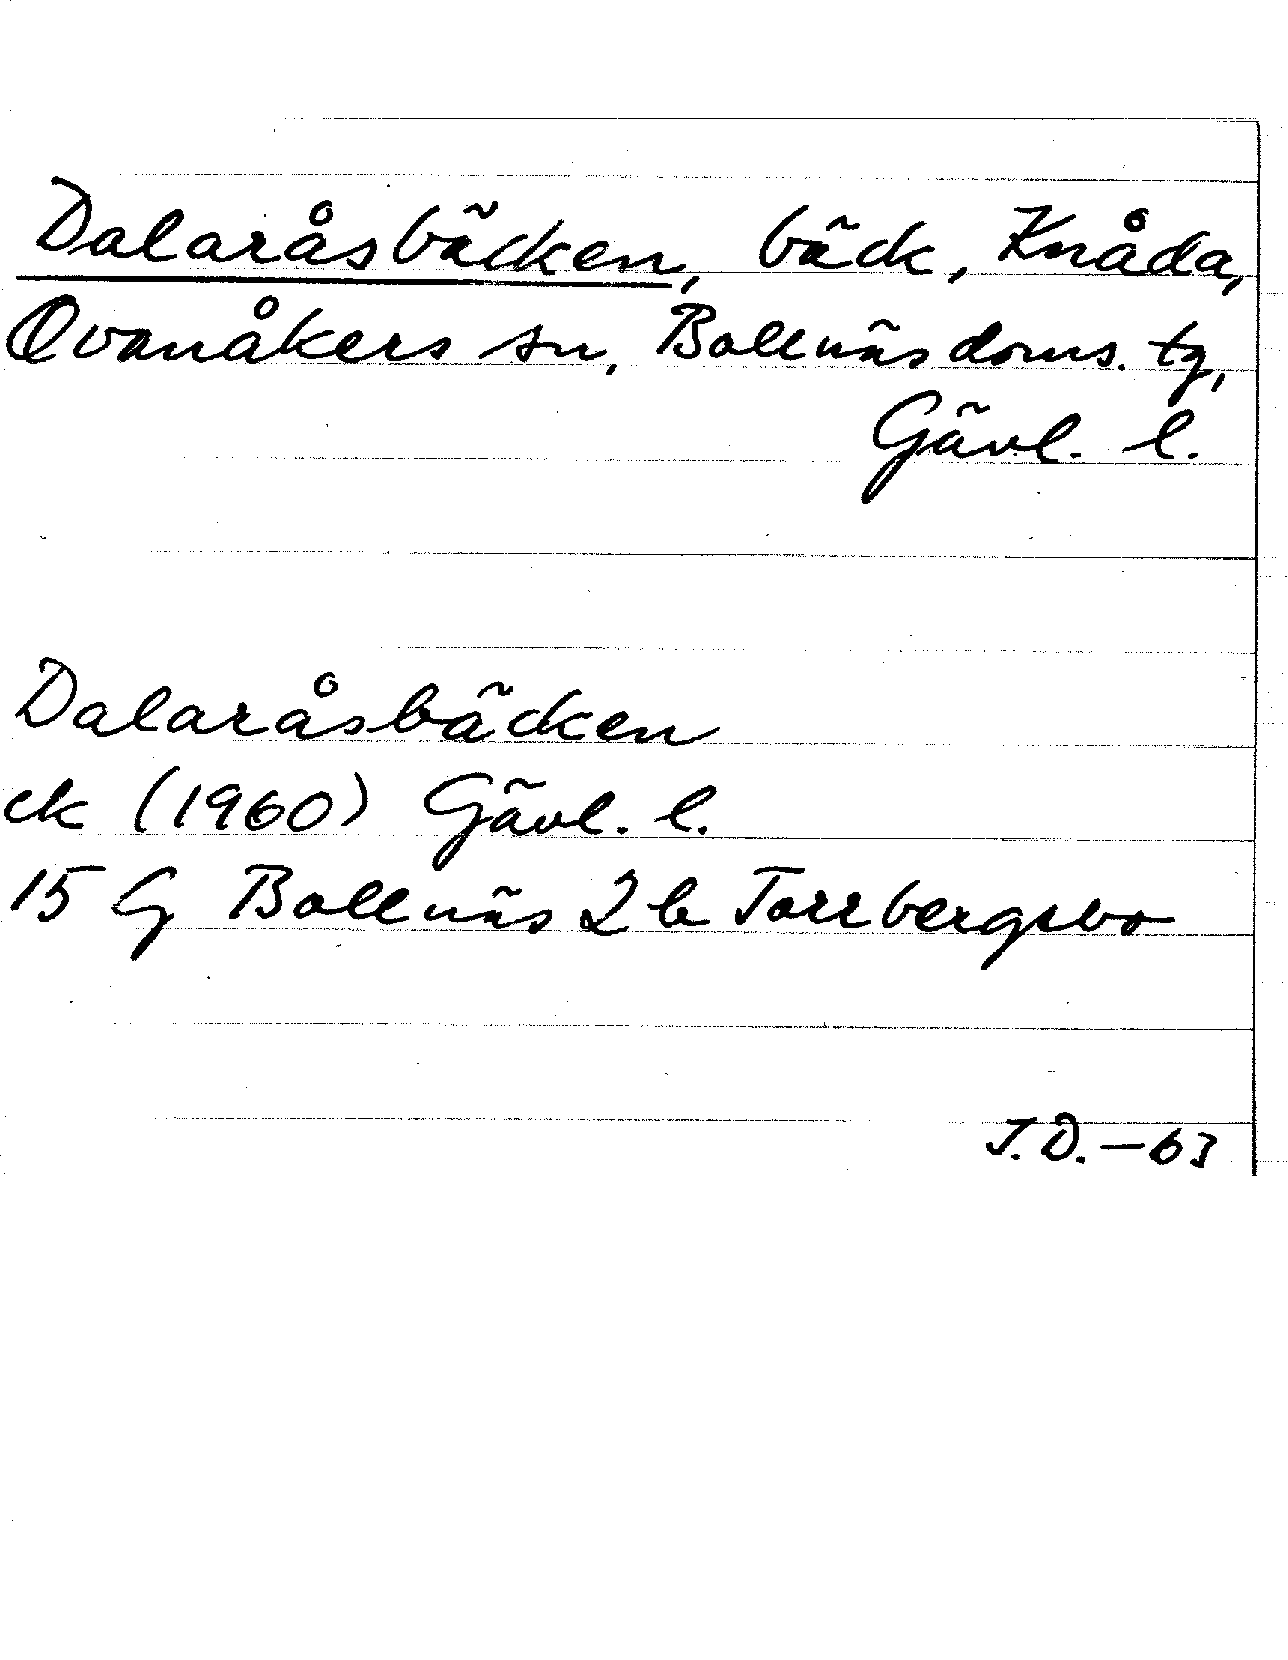 Dalaråsbäcken, bäck, Knåda,
Ovanåkers sn, Bollnäs doms. tg,
Gävl. l.
Dalaråsbäcken
ek (1960) Gävl. l.
15 G Bollnäs 2 b Torrbergsbo
J.D. - 63